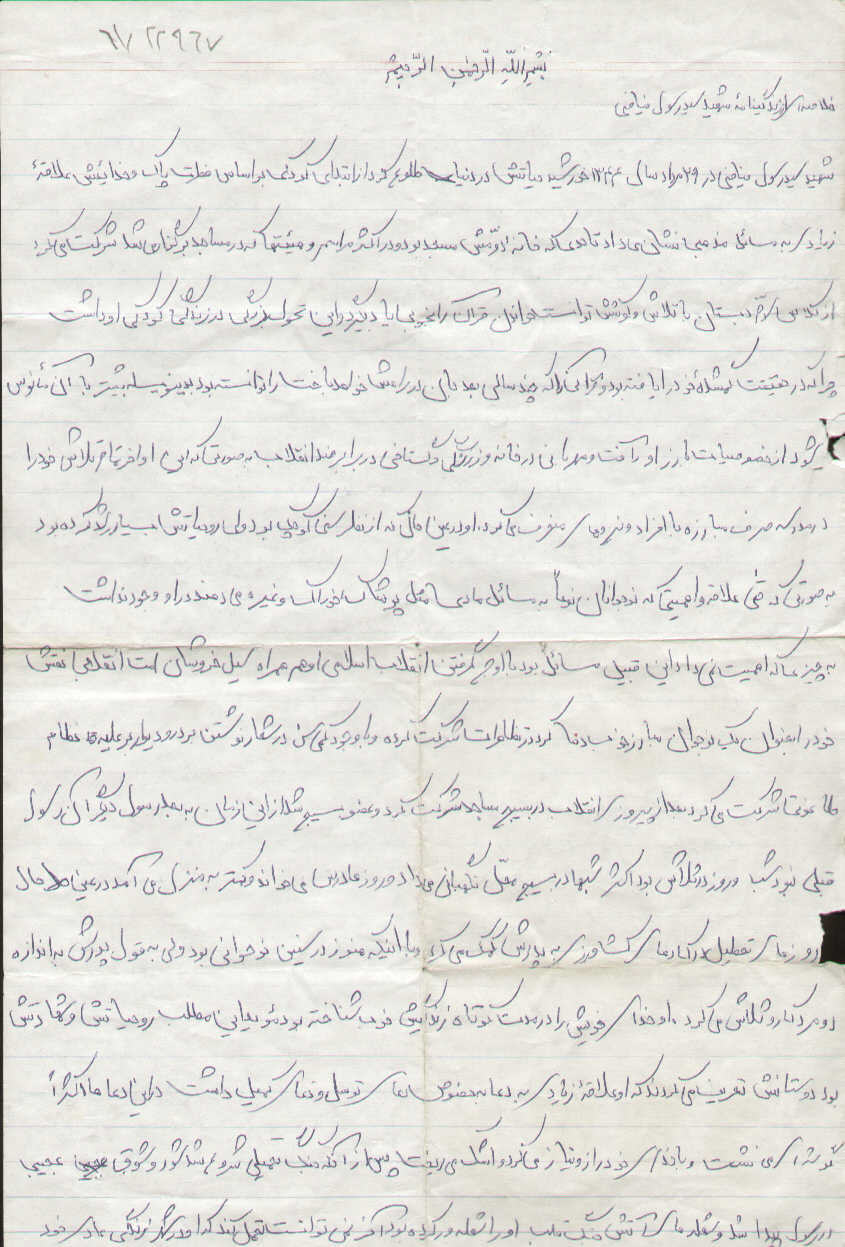 ۶۷/۲۲۹۶۷
بسم الله الرحمن الرحیم
خلاصه‌ای از زندگینامهٔ شهید سید رسول ضیافتی
شهید سید رسول ضیافتی در ۲۹ مرداد سال ۱۳۴۴ خورشید حیاتش در دنیا طلوع کرد از ابتدای کودکی بر اساس فطرت پاک و خدائیش علاقهٔ
زیادی به مسائل مذهبی نشان می داد تا حدی که خانه دومش مسجد بود و در اکثر مراسم و هیئتها که در مساجد برگذار می شد شرکت می کرد
از کلاس دبستان با تلاش و کوشش توانست خواندن قرآن را بخوبی یاد بگیرد و این تحول بزرگی در زندگی کودکی او داشت
چرا که در حقیقت گمشدهٔ خود را یافته بود و قرآنی را که چند سالی بعد جان در راهش خواهد باخت را توانسته بود بدینوسیله بیشتر با آن مأنوس
شود از خصوصیات بارز او رأفت و مهربانی در خانه و و گستاخی در برابر ضد انقلاب به صورتی که این اواخر تمام تلاش خود را
در مدرسه صرف مبارزه با افراد و نیروهای منحرف می کرد. او در عین حالی که از نظر سنی کوچک بود ولی روحیاتش بسیار رشد کرده بود
به صورتی که حتی علاقه و اهمیتی که نوجوانان نوعاً به مسائل مادی مثل پوشاک خوراک و غیره می دهند در او وجود نداشت
به چیزی که اهمیت نمی داد این قبیل مسائل بود با اوج گرفتن انقلاب اسلامی او هم همراه سیل خروشان امت انقلابی نقش
خود را بعنوان یک نوجوان مبارز خوب ایفا کرد در تظاهرات شرکت کرده و با وجود کمی سن در شعار نوشتن بر در و دیوار بر علیه نظام
طاغوتی شرکت می کرد بعد از پیروزی انقلاب در بسیج مساجد شرکت کرد و عضو بسیج شد از این زمان به بعد رسول دیگر آن رسول
قبلی نبود شب و روز در تلاش بود اکثر شبها در بسیج محل نگهبانی می داد و روزها درس می خواند و کمتر به منزل می آمد در عین حال
روزهای تعطیل در کارهای کشاورزی به پدرش کمک می کرد و با اینکه هنوز در سنین نوجوانی بود ولی به قول پدرش به اندازه
دو مرد کار و تلاش می کرد. او خدای خویش را در مدت کوتاه زندگیش خوب شناخته بود مؤید این مطلب روحیاتش و شهادتش
بود دوستانش تعریف می کردند که او علاقهٔ زیادی به دعا بخصوص دعای توسل و دعای کمیل داشت در این دعاها اکثراً
گوشه ای می نشست و با خدای خود راز و نیاز می کرد و اشک می ریخت پس از آنکه جنگ تحمیلی شروع شد شور و شوق عجیبی
در رسول پیدا شد و شعله های آتش جنگ قلب او را شعله ور کرده بود آخر نمی توانست تحمل کند که او در شهر زندگی عادی خود